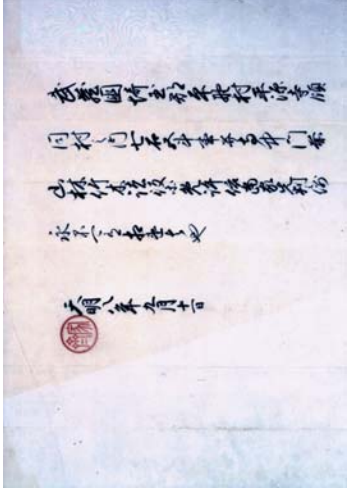 武蔵國埼玉郡平野村平源寺領
同村之内七石六斗事并寺中門前
山林竹木諸役等免許依當家先判之例
永不可有相違者也
天明八年九月十一日